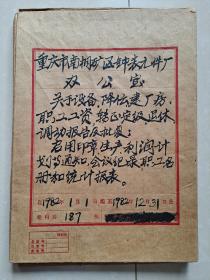 重庆市南桐矿区钟表元件厂
办公室
关于设备、降坛建厂房、
职工工资、转正定级退休
调动报告及批复；
启用印章生产利润计
划的通知，会议纪录职工名
册和统计报表。
自1982年1月1日起至1982年12月31日止
卷内共187